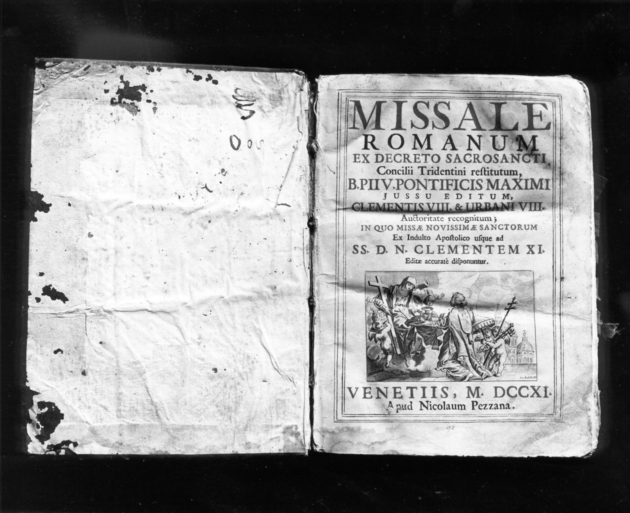 MISSALE
ROMANUM
EX DECRETO SACROSANCTI
Concilii Tridentini restitutum,
B. PII V. PONTIFICIS MAXIMI
JUSSU EDITUM,
CLEMENTIS VIII. & URBANI VIII.
Auctoritate recognitum;
IN QUO MISSÆ NOVISSIMÆ SANCTORUM
Ex Indulto Apostolico usque ad
SS. D. N. CLEMENTEM XI.
Editæ accuratè disponuntur.
VENETIIS, M. DCCXI.
Apud Nicolaum Pezzana.